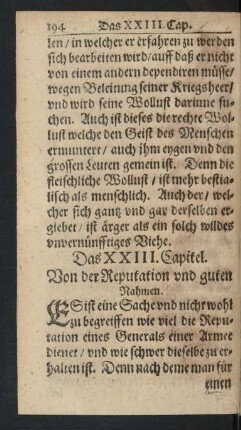 194. Das XXIII. Cap.
len / in welcher er erfahren zu werden
sich bearbeiten wird / auff daß er nicht
von einem andern dependiren müsse /
wegen Beleitung seiner Kriegsheer /
vnd wird seine Wollust darinne su-
chen. Auch ist dieses die rechte Wol-
lust welche den Geist des Menschen
ermuntert / auch ihm eygen vnd den
grossen Leuten gemein ist. Denn die
fleischliche Wollust / ist mehr bestia-
lisch als menschlich. Auch der / wel-
cher sich gantz vnd gar derselben er-
giebet / ist ärger als ein solch wildes
vnvernünfftiges Viehe.
Das XXIII. Capitel.
Von der Reputation vnd guten
Nahmen.
ES ist eine Sache vnd nicht wohl
zu begreiffen wie viel die Repu-
tation eines Generals einer Armee
dienet / vnd wie schwer dieselbe zu er-
halten ist. Denn nach deme man für
einen